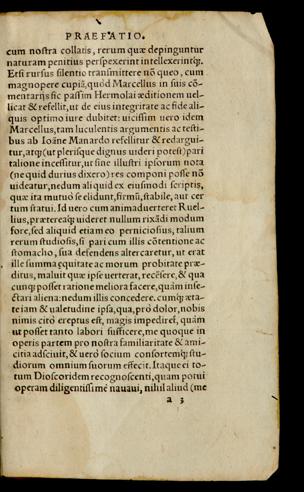 PRAEFATIO.
cum nostra collatis, rerum quæ depinguntur
naturam penitius perspexerint intellexerintq́;.
Etsi rursus silentio transmittere nõ queo, cum
magnopere cupiã, quòd Marcellus in suis cõ-
mentarijs sic passim Hermolai æditionem uel-
licat & refellit, ut de eius integritate ac fide ali-
quis optimo iure dubitet: uicissim uero idem
Marcellus, tam luculentis argumentis ac testi-
bus ab Ioãne Manardo refellitur & redargui-
tur, atq́; (ut plerisque dignus uideri potest) pari
talione incessitur, ut sine illustri ipsorum nota
(ne quid durius dixero) res componi posse nõ
uideatur, nedum aliquid ex eiusmodi scriptis,
quæ ita mutuò se elidunt, firmũ, stabile, aut cer
tum statui. Id uero cum animaduerteret Ruel-
lius, prætereaq́; uideret nullum rixãdi modum
fore, sed aliquid etiam eo perniciosius, talium
rerum studiosis, si pari cum illis cõtentione ac
stomacho, sua defendens altercaretur, ut erat
ille summa æquitate ac morum probitate præ-
ditus, maluit quæ ipse uerterat, recẽsere, & qua
cunq; posset ratione meliora facere, quàm inse-
ctari aliena: nedum illis concedere. cumq́; æta-
te iam & ualetudine ipsa, qua, prò dolor, nobis
nimis citò ereptus est, magis impediret̃, quàm
ut posset tanto labori sufficere, me quoque in
operis partem pro nostra familiaritate & ami-
citia adsciuit, & uerò socium consortemq́; stu-
diorum omnium suorum effecit. Itaque ei to-
tum Dioscoridem recognoscenti, quam potui
operam diligentissimè nauaui, nihil aliud (me
a 3